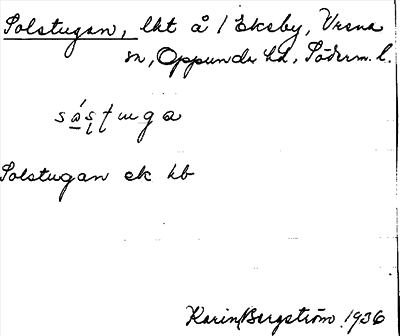 Solstugan, lht å 1 Eksby, Vrena
sn, Oppunda hd, Söderm. l.
sá̱s̨t̨uga
Solstugan ek hb
Karin Bergström 1936